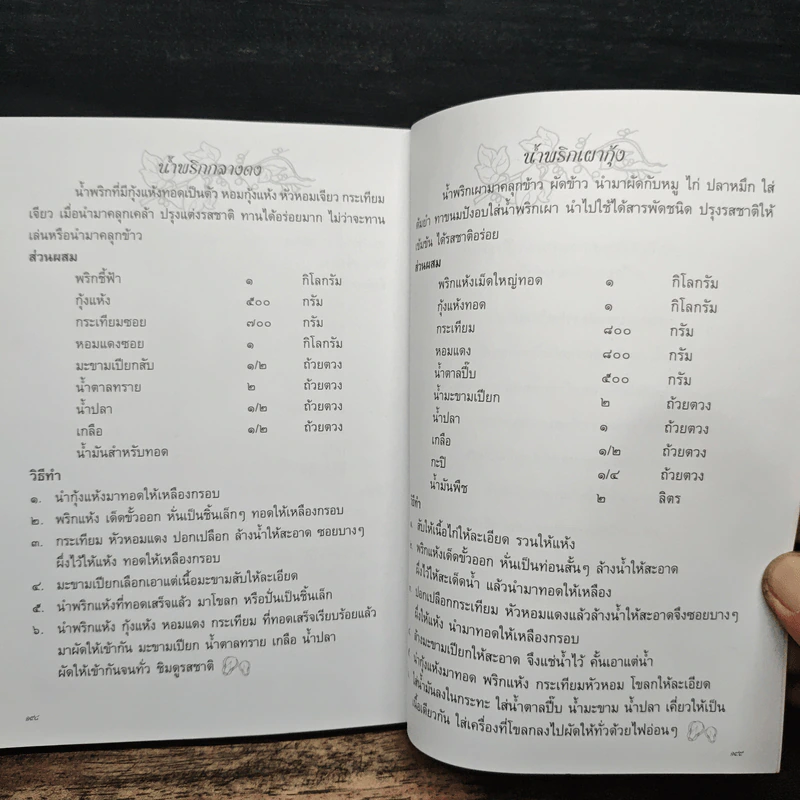 น้ำพริกกลางดง
น้ำพริกที่มีกุ้งแห้งทอดเป็นตัว หอมกุ้งแห้ง หัวหอมเจียว กระเทียม
เจียว เมื่อนำมาคลุกเคล้า ปรุงแต่งรสชาติ ทานได้อร่อยมาก ไม่ว่าจะทาน
เล่นหรือนำมาคลุกข้าว
ส่วนผสม
พริกชี้ฟ้า ๑ กิโลกรัม
กุ้งแห้ง ๕๐๐ กรัม
กระเทียมซอย ๗๐๐ กรัม
หอมแดงซอย ๑ กิโลกรัม
มะขามเปียกสับ ๑/๒ ถ้วยตวง
น้ำตาลทราย ๒ ถ้วยตวง
น้ำปลา ๑/๒ ถ้วยตวง
เกลือ ๑/๒ ถ้วยตวง
น้ำมันสำหรับทอด
วิธีทำ
๑. นำกุ้งแห้งมาทอดให้เหลืองกรอบ
๒. พริกแห้ง เด็ดขั้วออก หั่นเป็นชิ้นเล็กๆ ทอดให้เหลืองกรอบ
๓. กระเทียม หัวหอมแดง ปอกเปลือก ล้างน้ำให้สะอาด ซอยบางๆ
ผึ่งไว้ให้แห้ง ทอดให้เหลืองกรอบ
๔. มะขามเปียกเลือกเอาแต่เนื้อมะขามสับให้ละเอียด
๕. นำพริกแห้งที่ทอดเสร็จแล้ว มาโขลก หรือปั่นเป็นชิ้นเล็ก
๖. นำพริกแห้ง กุ้งแห้ง หอมแดง กระเทียม ที่ทอดเสร็จเรียบร้อยแล้ว
มาผัดให้เข้ากัน มะขามเปียก น้ำตาลทราย เกลือ น้ำปลา
ผัดให้เข้ากันจนทั่ว ชิมดูรสชาติ
น้ำพริกเผากุ้ง
น้ำพริกเผามาคลุกข้าว ผัดข้าว นำมาผัดกับหมู ไก่ ปลาหมึก ใส่
ต้มยำ ทาขนมปังอบใส่น้ำพริกเผา นำไปใช้ได้สารพัดชนิด ปรุงรสชาติให้
เข้มข้น ได้รสชาติอร่อย
ส่วนผสม
พริกแห้งเม็ดใหญ่ทอด ๑ กิโลกรัม
กุ้งแห้งทอด ๑ กิโลกรัม
กระเทียม ๘๐๐ กรัม
หอมแดง ๘๐๐ กรัม
น้ำตาลปี๊บ ๕๐๐ กรัม
น้ำมะขามเปียก ๒ ถ้วยตวง
น้ำปลา ๑ ถ้วยตวง
เกลือ ๑/๒ ถ้วยตวง
กะปิ ๑/๔ ถ้วยตวง
น้ำมันพืช ๒ ลิตร
วิธีทำ
สับให้เนื้อไก่ให้ละเอียด รวนให้แห้ง
พริกแห้งเด็ดขั้วออก หั่นเป็นท่อนสั้นๆ ล้างน้ำให้สะอาด
ผึ่งไว้ให้สะเด็ดน้ำ แล้วนำมาทอดให้เหลือง
ปอกเปลือกกระเทียม หัวหอมแดงแล้วล้างน้ำให้สะอาดจึงซอยบางๆ
ผึ่งให้แห้ง นำมาทอดให้เหลืองกรอบ
ล้างมะขามเปียกให้สะอาด จึงแช่น้ำไว้ คั้นเอาแต่น้ำ
นำกุ้งแห้งมาทอด พริกแห้ง กระเทียมหัวหอม โขลกให้ละเอียด
ใส่น้ำมันลงในกระทะ ใส่น้ำตาลปี๊บ น้ำมะขาม น้ำปลา เคี่ยวให้เป็น
เนื้อเดียวกัน ใส่เครื่องที่โขลกลงไปผัดให้ทั่วด้วยไฟอ่อนๆ